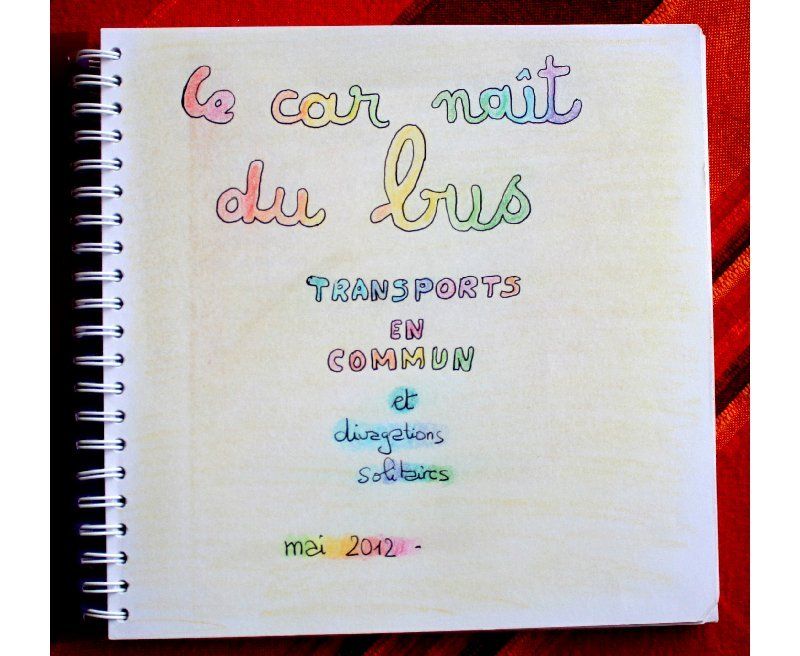 le car naît
du bus
TRANSPORTS
EN
COMMUN
et
divagations
solitaires
mai 2012 -